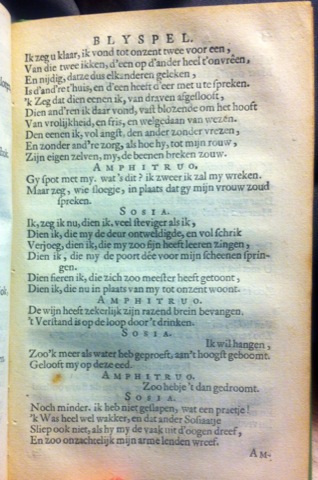 BLYSPEL.
Ik zeg u klaar, ik vond tot onzent twee voor een,
Van die twee ikken, d'een op d'ander heel t'onvreên,
En nijdig, datze dus elkanderen geleken,
Is d'and're t'huis, en d'een heeft d'eer met u te spreken.
'k Zeg dat dien eenen ik, van draven afgeslooft,
Dien and'ren ik daar vond, vast blozende om het hooft
Van vrolijkheid, en fris, en welgedaan van wezen.
Den eenen ik, vol angst, den ander zonder vrezen,
En zonder and're zorg, als hoe hy, tot mijn rouw,
Zijn eigen zelven, my, de beenen breken zouw.
AMPHITRUO.
Gy spot met my. wat 's dit? ik zweer ik zal my wreken.
Maar zeg, wie sloegje, in plaats dat gy mijn vrouw zoud
spreken.
SOSIA.
Ik, zeg ik nu, dien ik, veel steviger als ik,
Dien ik, die my de deur ontweldigde, en vol schrik
Verjoeg, dien ik, die my zoo fijn heeft leeren zingen,
Dien ik, die my de poort deê voor mijn scheenen sprin-
gen.
Dien fieren ik, die zich zoo meester heeft getoont,
Dien ik, die nu in plaats van my tot onzent woont.
AMPHITRUO.
De wijn heeft zekerlijk zijn razend brein bevangen.
't Verstand is op de loop door 't drinken.
SOSIA.
Ik wil hangen,
Zoo 'k meer als water heb geproeft, aan 't hoogst geboomt.
Gelooft my op deze eed.
AMPHITRUO.
Zoo hebje 't dan gedroomt.
SOSIA.
Noch minder. ik heb niet geslapen, wat een praetje!
'k Was heel wel wakker, en dat ander Sosiaatje
Sliep ook niet, als hy my de vaak uit d'oogen dreef,
En zoo onzachtelijk mijn arme lenden wreef.
AM-